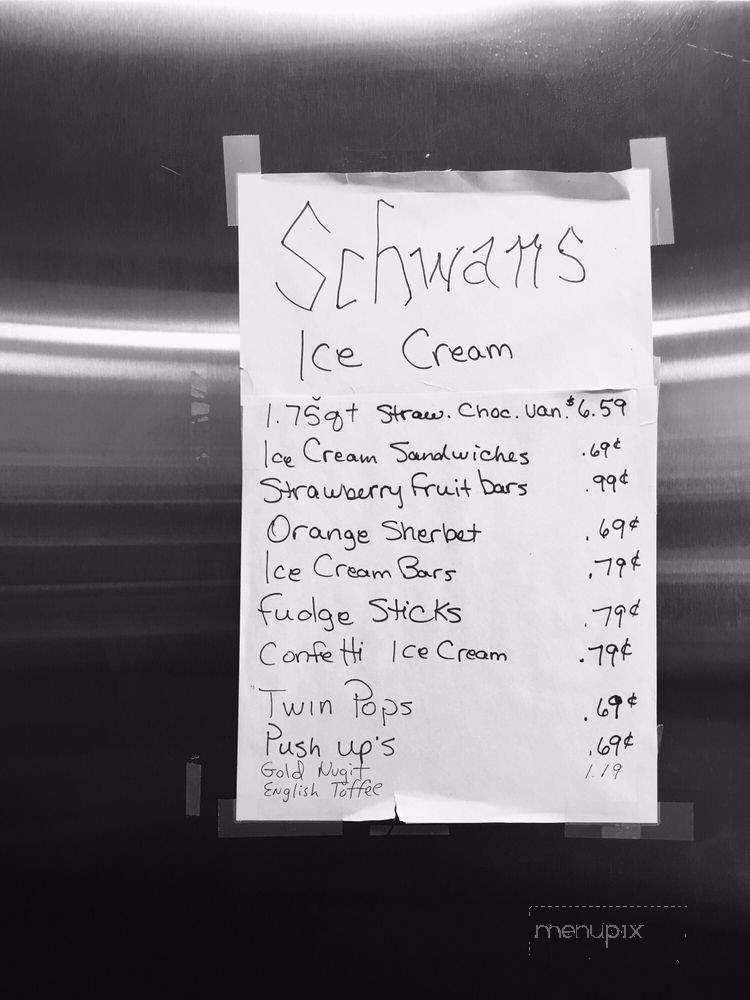 Schwans
Ice Cream
1.75qt Straw. Choc. Van. $6.59
Ice Cream Sandwiches .69¢
Strawberry fruit bars .99¢
Orange Sherbet .69¢
Ice Cream Bars .79¢
fudge Sticks .79¢
Confetti Ice Cream .79¢
Twin Pops .69¢
Push up's .69¢
Gold Nugit 1.19
English Toffee
menupix